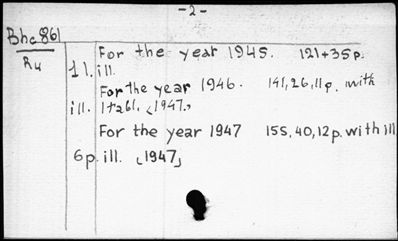 -2-
Bhc861
Ru
For the year 1945. 121+35p.
1 l. ill.
For the year 1946. 141,26,11p. with
ill. 1tabl. 1947.
For the year 1947 155,40,12p. with ill
6p. ill. 1947